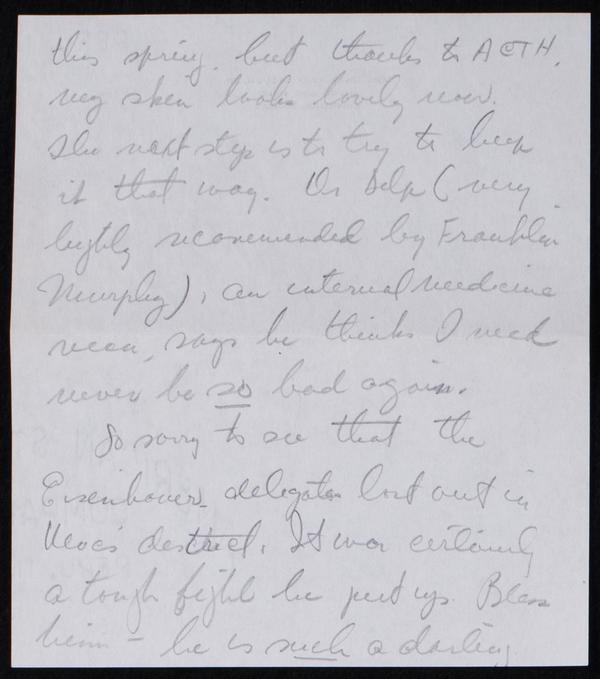 this spring, but thanks to ACTH,
my skin looks lovely now.
The next step is to try to keep
it that way. Dr Delp (very
highly recommended by Franklin
Murphy), an internal medicine
man, says he thinks I need
never be so bad again.
So sorry to see that the
Eisenhower delegates lost out in
district. It was certainly
a tough fight he put up. Bless
him – he is such a darling